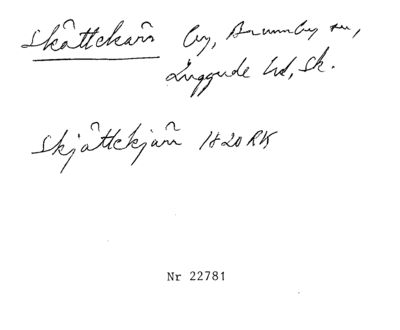 Skättekärr by, Brunnby sn,
Luggude hd, Sk.
Skjättekjärr 1820 RK
Nr 22781